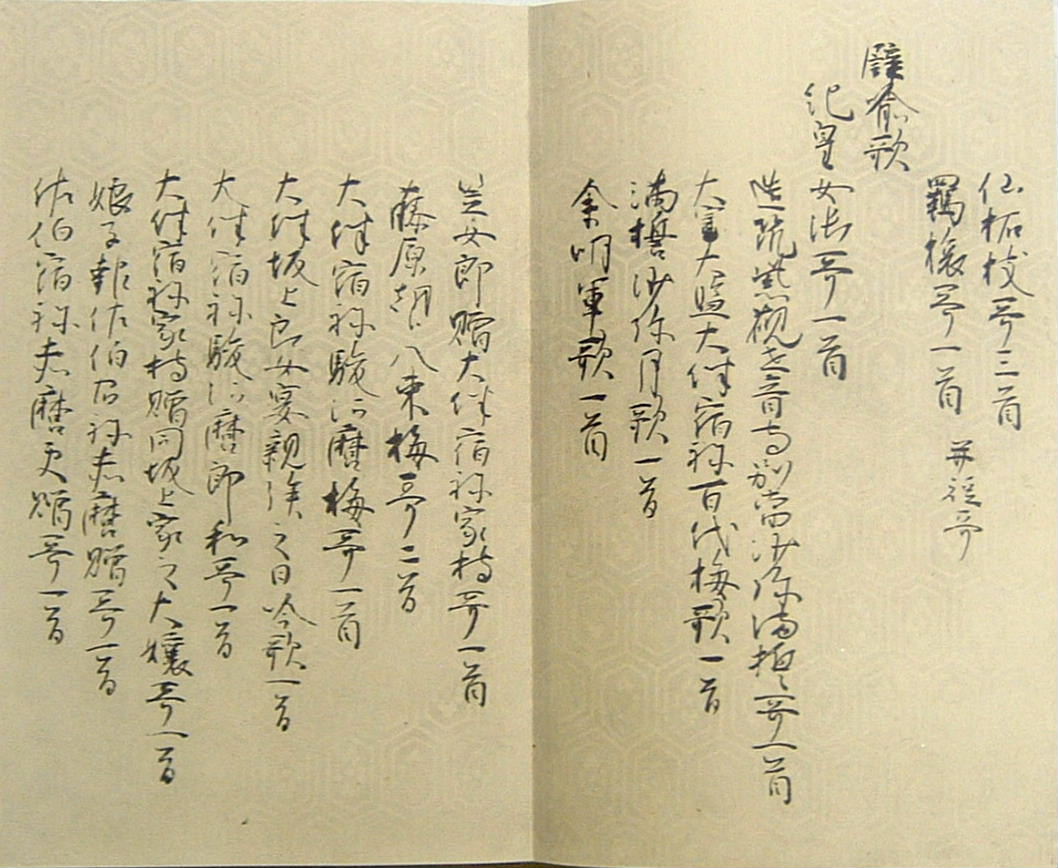 仙柘枝哥三首
羈旅哥一首 并短哥
譬喩歌
紀皇女御哥一首
造筑紫觀世音寺別當沙弥満誓哥一首
大宰大監大伴宿祢百代梅歌一首
満誓沙弥月歌一首
余明軍歌一首
笠女郎贈大伴宿祢家持哥一首
藤原朝臣八束梅哥二首
大伴宿祢駿河麿梅哥一首
大伴坂上郎女宴親族之日吟歌一首
大伴宿祢駿河麿即和哥一首
大伴宿祢家持贈同坂上家之大孃哥一首
娘子報佐伯宿祢赤麿贈哥一首
佐伯宿祢赤麿更贈哥一首